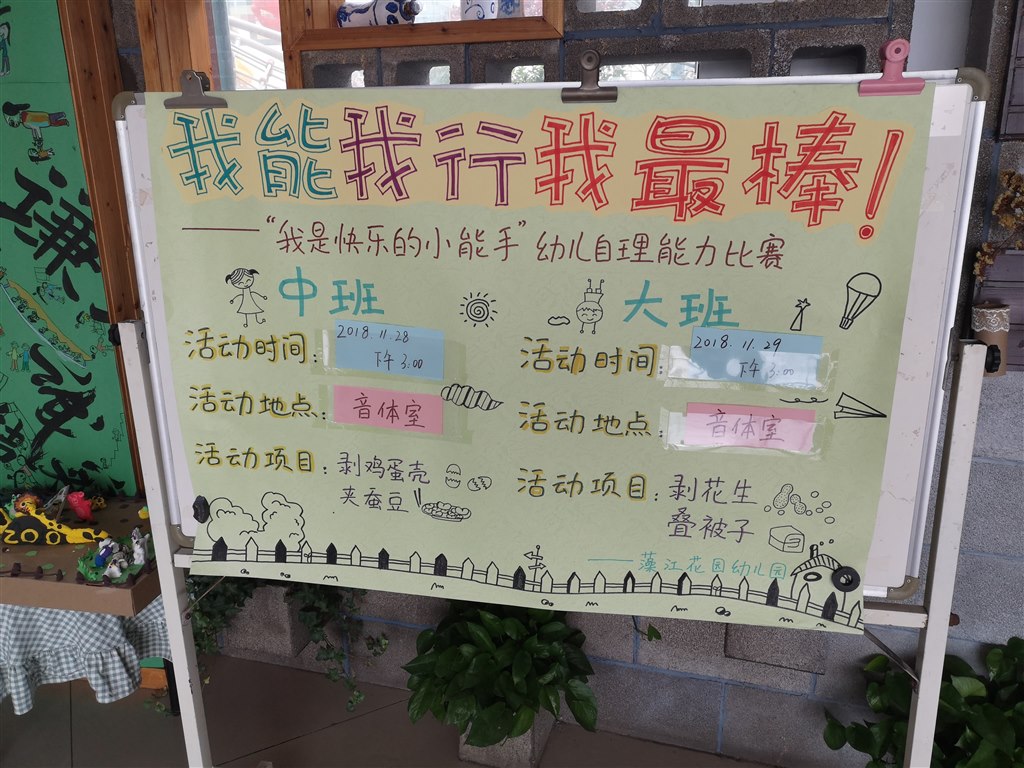 我能我行我最棒!
——“我是快乐的小能手”幼儿自理能力比赛
中班
活动时间: 2018.11.28 下午 3:00
活动地点: 音体室
活动项目: 剥鸡蛋壳
夹蚕豆
大班
活动时间: 2018.11.29 下午 3:00
活动地点: 音体室
活动项目: 剥花生
叠被子
——藻江花园幼儿园
谦